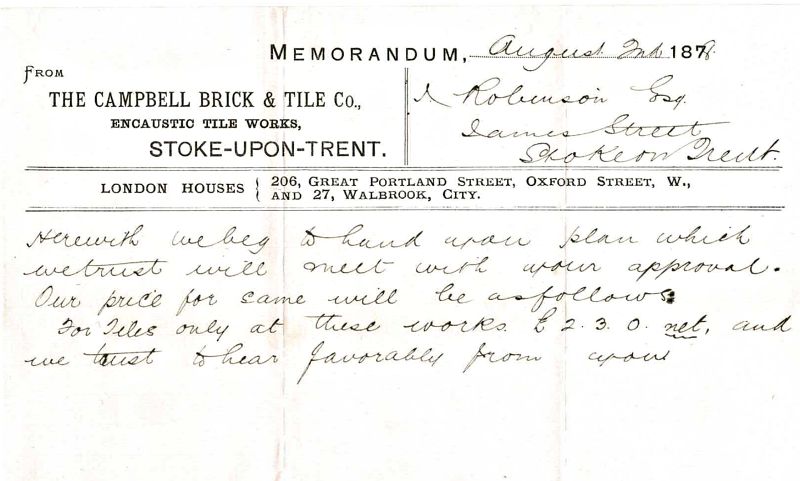 MEMORANDUM, August 2nd 1878
FROM
THE CAMPBELL BRICK & TILE Co.,
ENCAUSTIC TILE WORKS,
STOKE-UPON-TRENT.
Robinson Esq.
James Street
Stoke on Trent.
LONDON HOUSES { 206, GREAT PORTLAND STREET, OXFORD STREET, W.,
AND 27, WALBROOK, CITY.
Herewith we beg to hand your plan which
we trust will meet with your approval.
Our price for same will be as follows
For Tiles only at these works £2.3.0. net, and
we trust to hear favorably from you